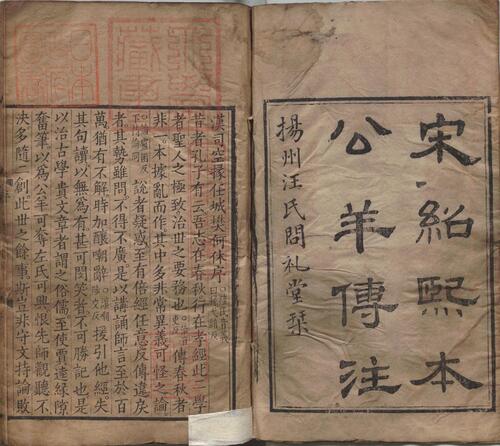 宋紹熙本
公羊傳注
揚州汪氏問礼堂栞
漢司空掾任城樊何休序
昔者孔子有云吾志在春秋行在孝經此二學
者聖人之極致治世之要務也傳春秋者
非一本據亂而作其中多非常異義可怪之論
說者疑惑至有倍經任意反傳違戾
者其勢雖問不得不廣是以講誦師言至於百
萬猶有不解時加釀嘲辭援引他經失
其句讀以無為有甚可閔笑者不可勝記也是
以治古學貴文章者謂之俗儒至使賈逵緣隙
奮筆以為公羊可奪左氏可興恨先師觀聽不
決多隨二創此世之餘事斯豈非守文持論敗